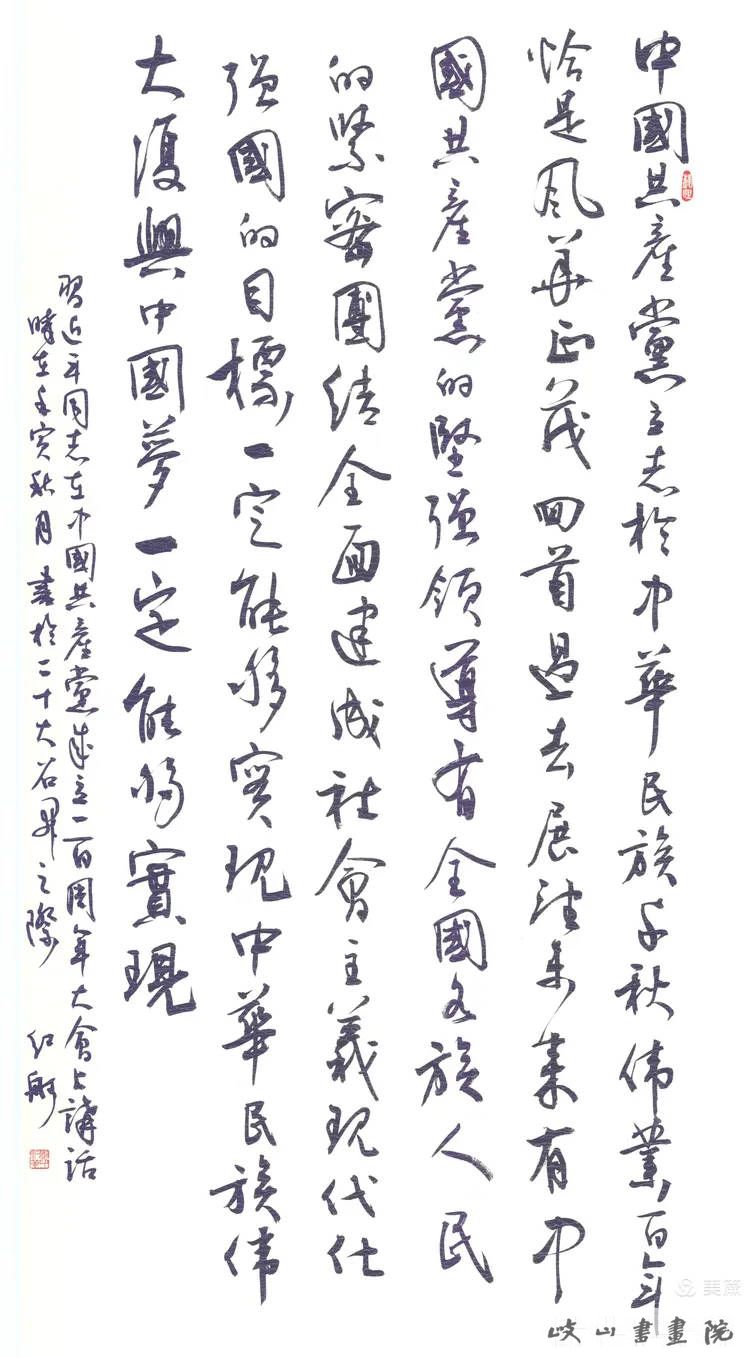 中國共産黨立志於中華民族千秋偉業百年
恰是風華正茂回首過去展望未來有中
國共産黨的堅强領導有全國各族人民
的緊密團結全面建成社會主義現代化
强國的目標一定能够實現中華民族偉
大復興中國夢一定能够實現
習近平同志在中國共産黨成立一百周年大會上講話
時在壬寅秋月書於二十大召開之際 紅
美篇
岐山書畫院